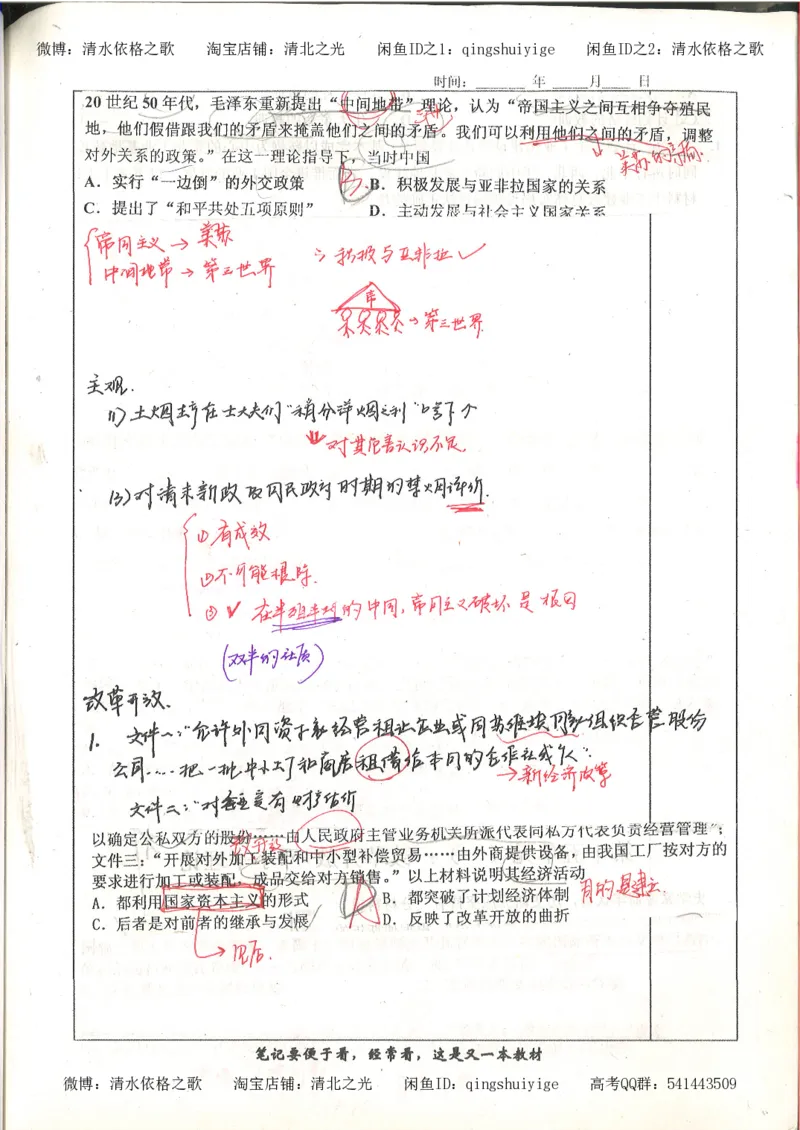 微博：清水依格之歌 淘宝店铺：清北之光 闲鱼ID之1：qingshuiyige 闲鱼ID之2：清水依格之歌
时间：______ 年 _____月____ 日
20 世纪 50 年代，毛泽东重新提出“中间地带”理论，认为“帝国主义之间互相争夺殖民
地，他们假借跟我们的矛盾来掩盖他们之间的矛盾。我们可以利用他们之间的矛盾，调整
对外关系的政策。”在这一理论指导下，当时中国
美苏的矛盾
A．实行“一边倒”的外交政策 B B．积极发展与亚非拉国家的关系
C．提出了“和平共处五项原则” D．主动发展与社会主义国家关系
帝国主义 → 美苏
中间地带 → 第三世界
∴ 积极与亚非拉 ✓
→ 第三世界
主观.
(1) 土烟主产在士大夫们“稍分洋烟之利”
对其危害认识不足.
(3) 对清末新政及国民政府时期的禁烟评价.
① 有成效
② 不可能根除.
③ ✓ 在半殖半封的中国, 帝国主义破坏是根因
(双半的社质)
改革开放.
1. 文件一:“允许外国资本家经营租让企业或同苏维埃国家组织合营股份
公司....把一批中小工厂和商店租借给本国的合作社或个人”.
→ 新经济政策
文件二:“对企业定有 财产估价
以确定公私双方的股份……由人民政府主管业务机关所派代表同私方代表负责经营管理”；
改革开放
文件三：“开展对外加工装配和中小型补偿贸易……由外商提供设备，由我国工厂按对方的
要求进行加工或装配，成品交给对方销售。”以上材料说明其经济活动
A．都利用国家资本主义的形式 A B．都突破了计划经济体制 目的是建立.
C．后者是对前者的继承与发展 D．反映了改革开放的曲折
→
笔记要便于看，经常看，这是又一本教材
微博：清水依格之歌 淘宝店铺：清北之光 闲鱼ID：qingshuiyige 高考QQ群：541443509